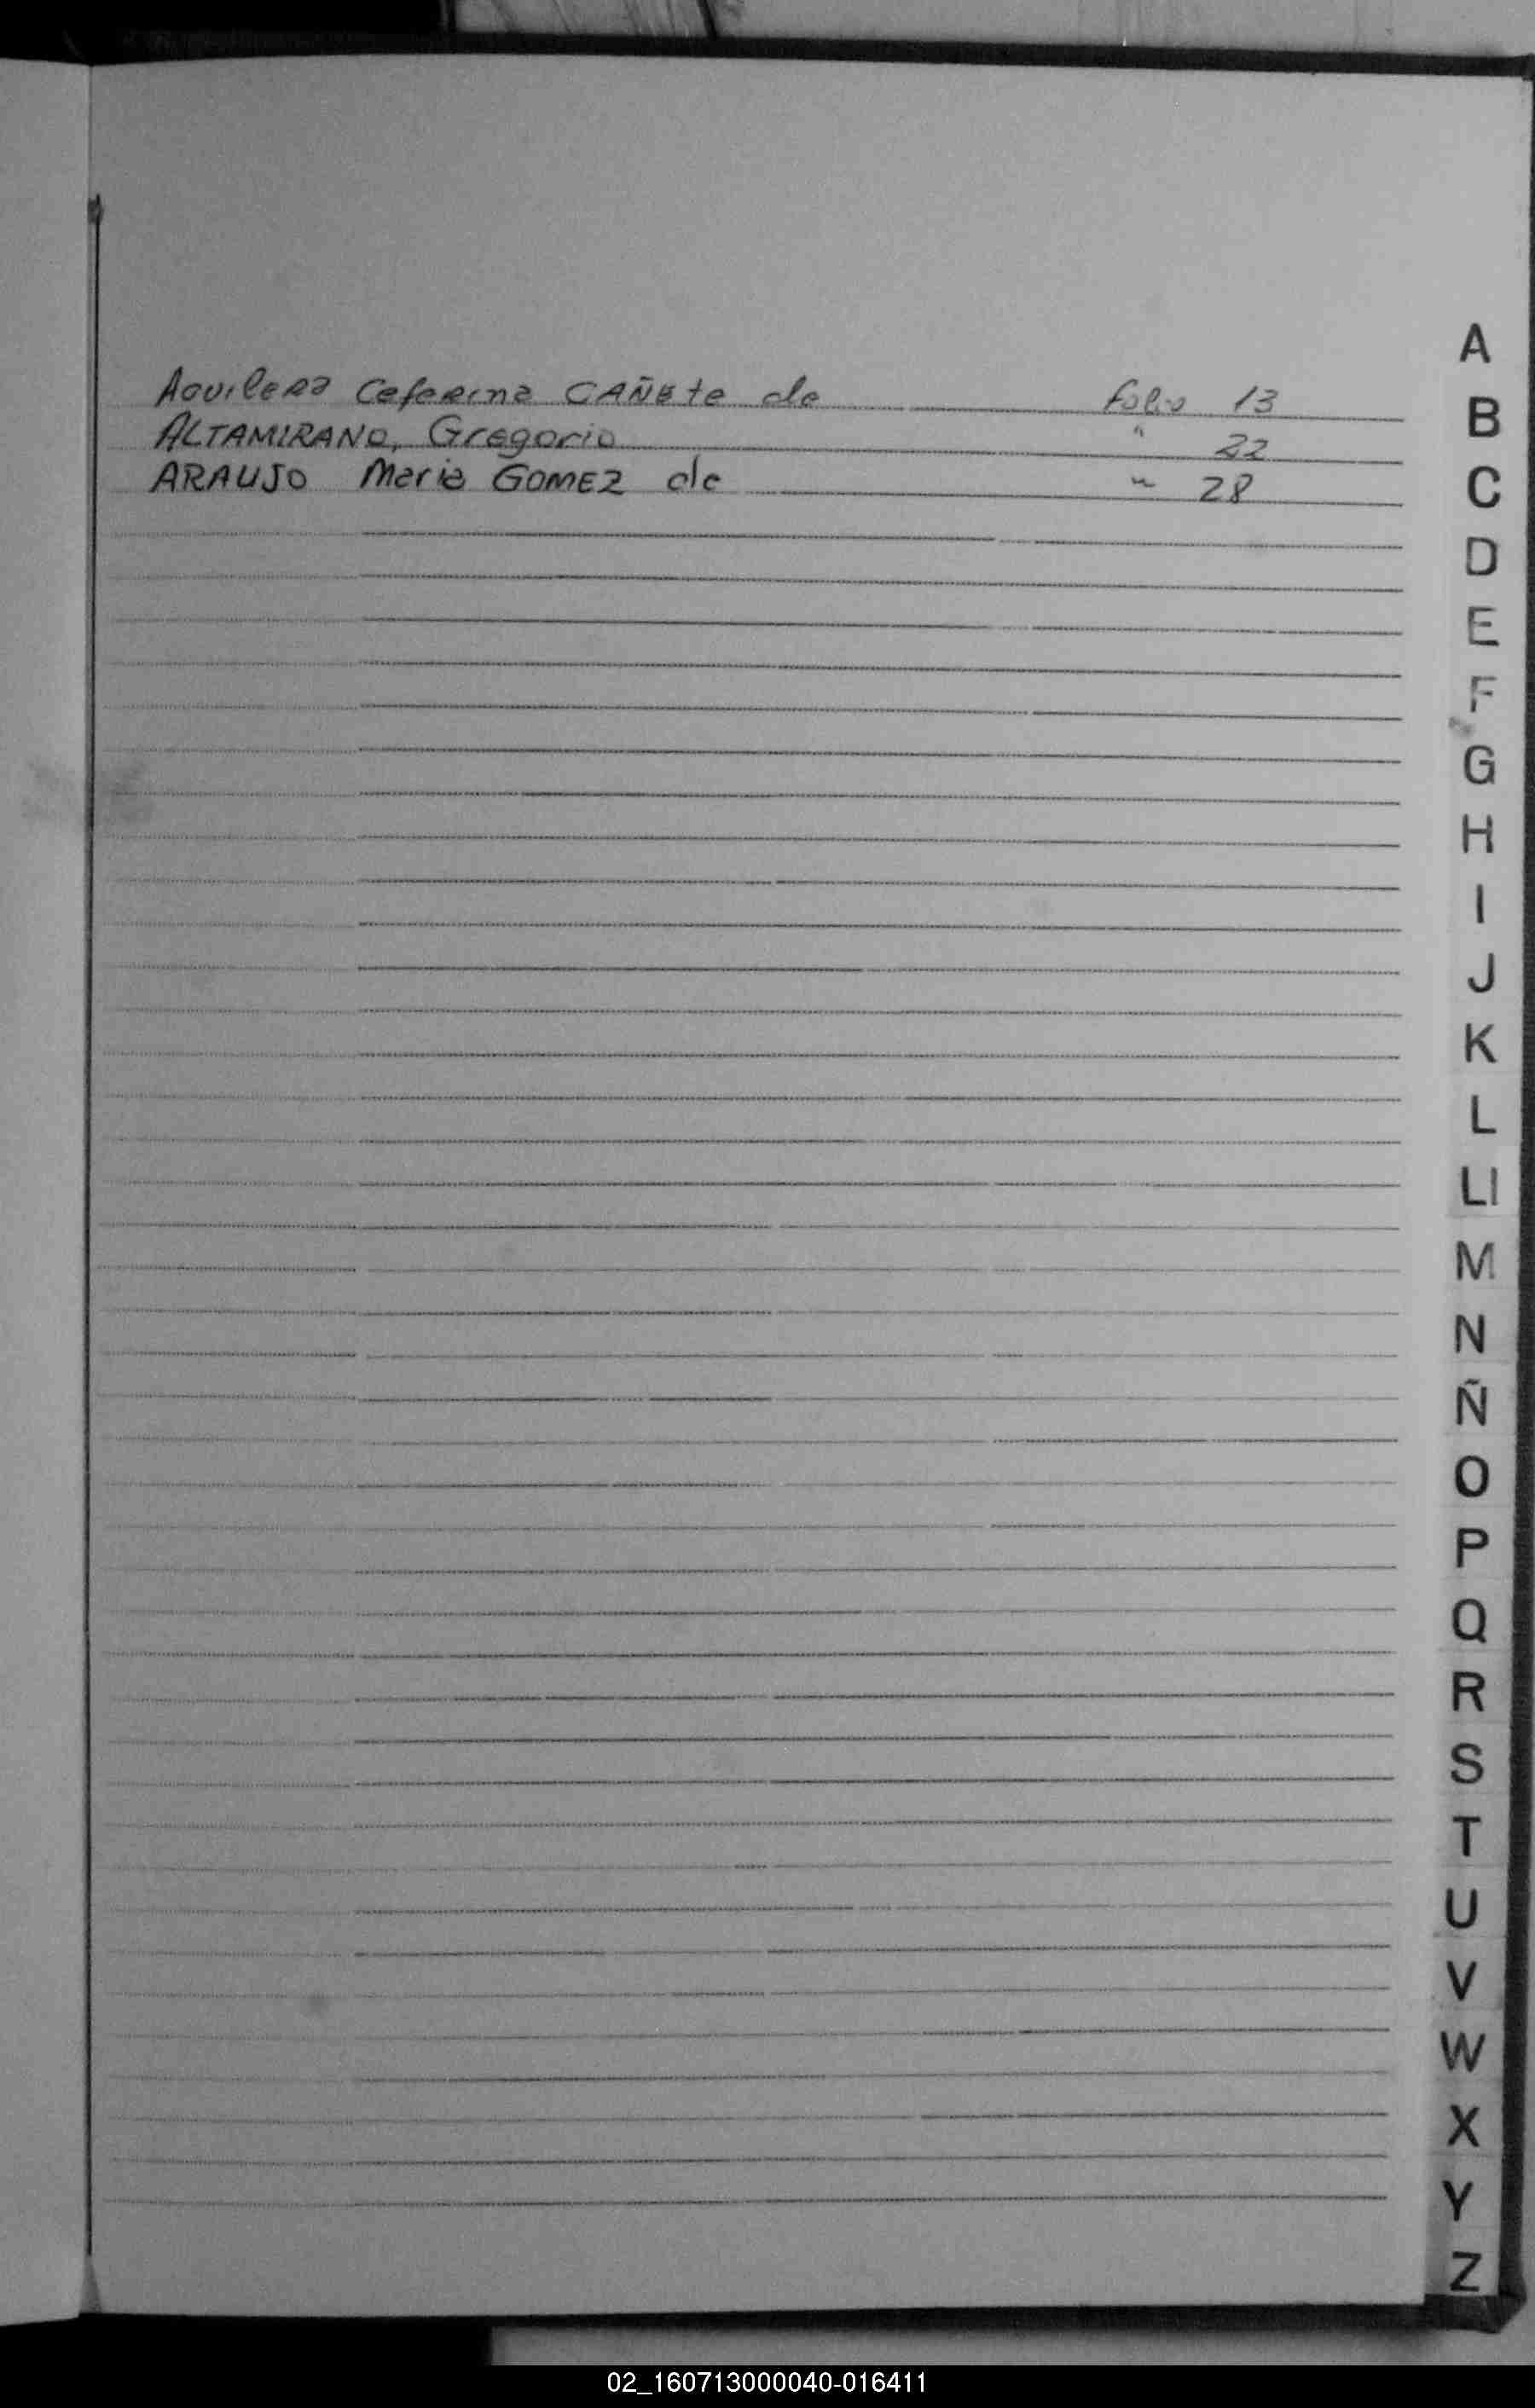 Aguilera Ceferina CAÑEte de folio 13
ALTAMIRANO, Gregorio " 22
ARAUJO Maria GOMEZ de " 28
A
B
C
D
E
F
G
H
I
J
K
L
Ll
M
N
Ñ
O
P
Q
R
S
T
U
V
W
X
Y
Z
02_160713000040-016411